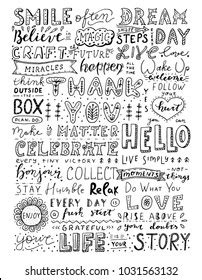 SMILE often DREAM
Believe in MAGIC STEPS DAY
CRAFT FUTURE LIVE
MIRACLES happen Wake Up
think THANK Welcome
OUTSIDE THE FOLLOW YOUR
BOX YOU heart
PLAN. DO.
Make it MATTER HELLO
CELEBRATE
EVERY TINY VICTORY LIVE SIMPLY
Bonjour COLLECT MOMENTS NOT things
STAY Humble Relax DO WHAT YOU
ENJOY Every day is a LOVE
fresh start RISE ABOVE
GRATEFUL your doubts
your LIFE is YOUR STORY.
shutterstock.com · 1031563132